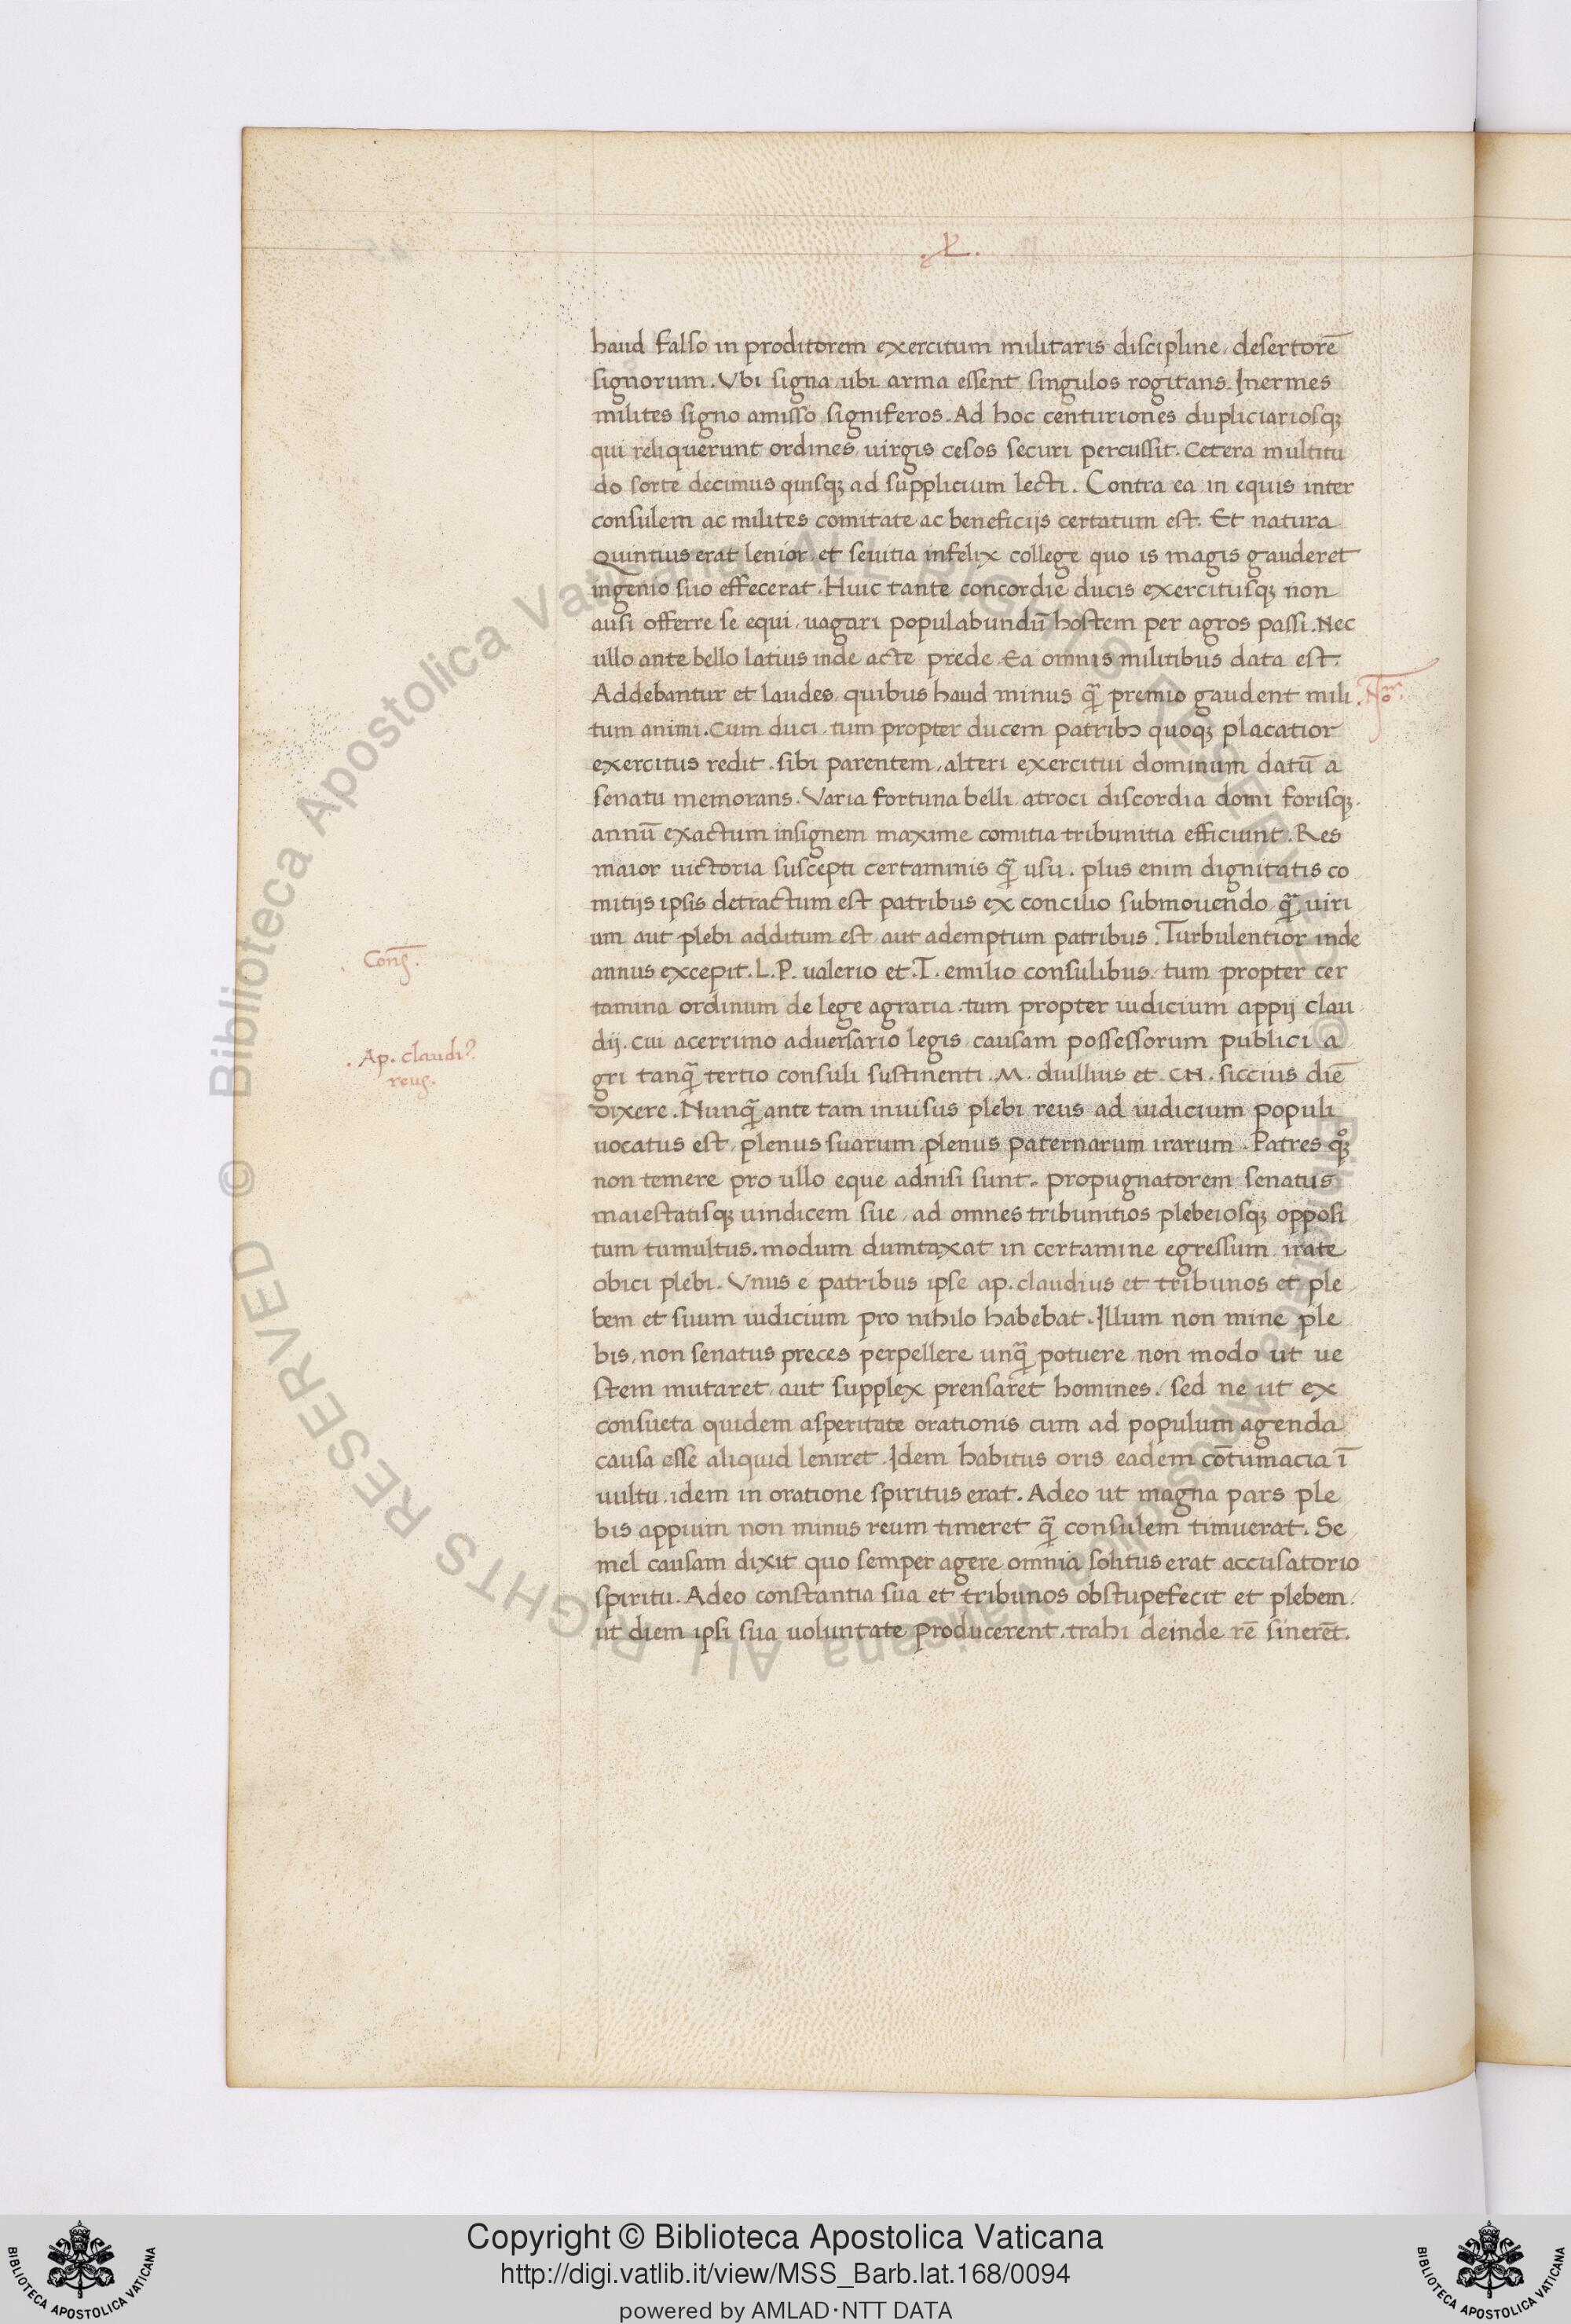 haud falso in proditorem exercitum militaris discipline, desertorē
signorum. Vbi signa, ubi arma essent singulos rogitans. Inermes
milites signo amisso signiferos. Ad hoc centuriones dupliciariosqꝫ
qui reliquerunt ordines, uirgis cesos securi percussit. Cetera multitu
do sorte decimus quisqꝫ ad supplicium lecti. Contra ea in equis inter
consulem ac milites comitate ac beneficijs certatum est. Et natura
Quintius erat lenior, et seuitia infelix college quo is magis gauderet
ingenio suo effecerat. Huic tante concordie ducis exercitusqꝫ non
ausi offerre se equi, uagari populabundū hostem per agros passi. Nec
ullo ante bello latius inde acte prede. Ea omnis militibus data est.
Addebantur et laudes, quibus haud minus qꝫ̄ premio gaudent mili
tum animi. Cum duci, tum propter ducem patribɔ quoqꝫ placatior
exercitus redit. sibi parentem, alteri exercitui dominum datū a
senatu memorans. Varia fortuna belli, atroci discordia domi forisqꝫ.
annū exactum insignem maxime comitia tribunitia efficiunt. Res
maior uictoria suscepti certaminis q̄ usu. plus enim dignitatis co
mitijs ipsis detractum est patribus ex concilio submouendo, q̄ uiri
um aut plebi additum est aut ademptum patribus. Turbulentior inde
annus excepit. L. P. ualerio et. T. emilio consulibus. tum propter cer
tamina ordinum de lege agraria. tum propter iudicium appij clau
dij. cui acerrimo aduersario legis, causam possessorum publici a
gri tanq̄ tertio consuli sustinenti. M. duillius et. CN. siccius diē
dixere. Nunq̄ ante tam inuisus plebi reus ad iudicium populi
uocatus est, plenus suarum, plenus paternarum irarum. Patres qꝫ
non temere pro ullo eque adnisi sunt. propugnatorem senatus
maiestatisqꝫ uindicem sue, ad omnes tribunitios plebeiosqꝫ opposi
tum tumultus. modum dumtaxat in certamine egressum, irate
obici plebi. Vnus e patribus ipse ap. claudius et tribunos et ple
bem et suum iudicium pro nihilo habebat. Illum non mine ple
bis, non senatus preces perpellere unq̄ potuere, non modo ut ue
stem mutaret, aut supplex prensaret homines, sed ne ut ex
consueta quidem asperitate orationis, cum ad populum agenda
causa esse aliquid leniret. Idem habitus oris, eadem cōtumacia ī
uultu, idem in oratione spiritus erat. Adeo ut magna pars ple
bis appium non minus reum timeret q̄ consulem timuerat. Se
mel causam dixit quo semper agere omnia solitus erat accusatorio
spiritu. Adeo constantia sua et tribunos obstupefecit et plebem.
ut diem ipsi sua uoluntate producerent, trahi deinde rē sinerēt.
Cons̄.
. Ap. claudi⁹
reus.
© Biblioteca Apostolica Vaticana ALL RIGHTS RESERVED
© Biblioteca Apostolica Vaticana ALL RIGHTS RESERVED
Copyright © Biblioteca Apostolica Vaticana
http://digi.vatlib.it/view/MSS_Barb.lat.168/0094
powered by AMLAD·NTT DATA
BIBLIOTECA APOSTOLICA VATICANA
BIBLIOTECA APOSTOLICA VATICANA